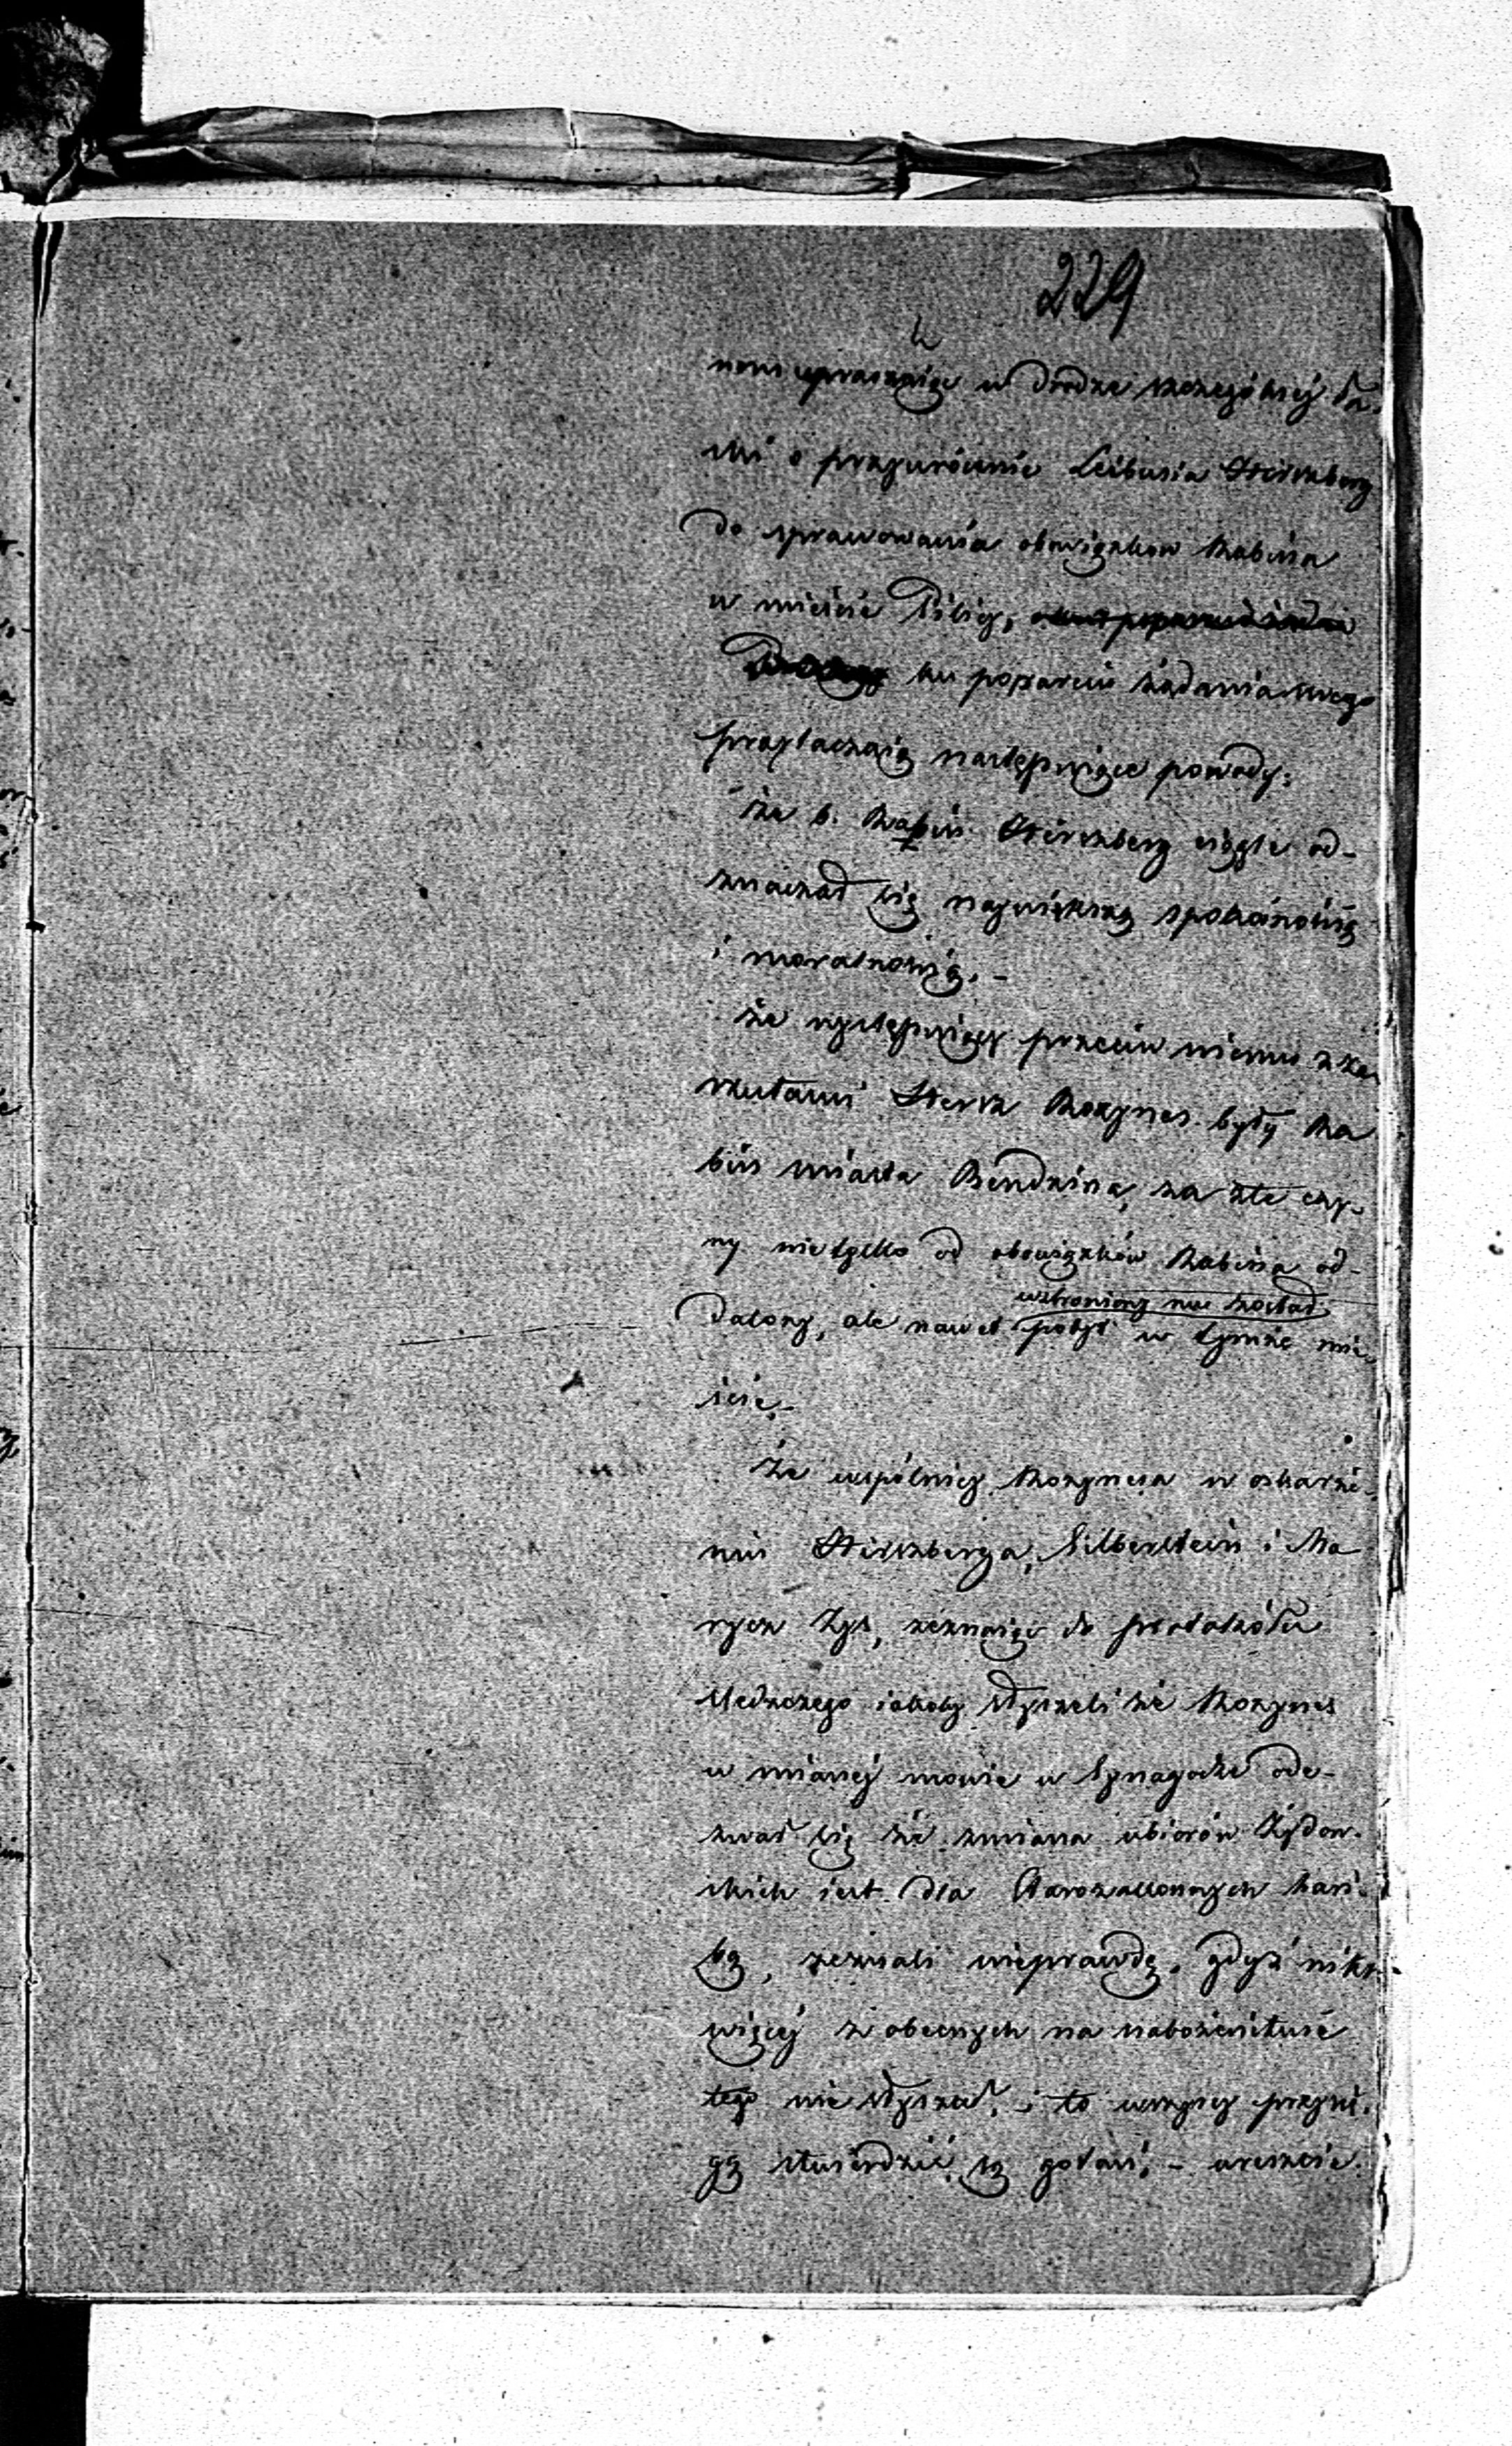 229
nowi upraszaiąc w drodze szczególnej ła,
ski o przywrócenie Leibusia Hirszberg
do sprawowania obowiązkow Rabina
w mieście Pilicy,
ku poparciu żądania swego
przytaczaią następuiące powody:
że b. Rabin Hirszberg ciągle od-
znaczał się naywiększą spokoinością
i moralnością. -
że występuiący przeciw niemu z za,
rzutami Herszk Rozynes były Ra
bin miasta Bendzina, za złe czy-
ny nietylko od obowiązków Rabina od-
wzbroniony mu został
dalony, ale nawet pobyt w tymże mie,
ście,-
że wspólnicy Rozynesa w oskarże-
niu Hirszberga, Silberstein i Ma
ryez Zys, zeznaiąc do protokółu
śledczego iakoby słyszeli że Rozynes
w mianej mowie w Synagodze ode-
zwał się że zmiana ubiorów Żydow-
skich iest dla Starozakonnych hań-
bą, zeznali nieprawdę, gdyż nikt
więcej z obecnych na nabożeństwie
tego nie słyszał, i to wszyscy przysię,
gą stwierdzić są gotowi, - wreszcie.